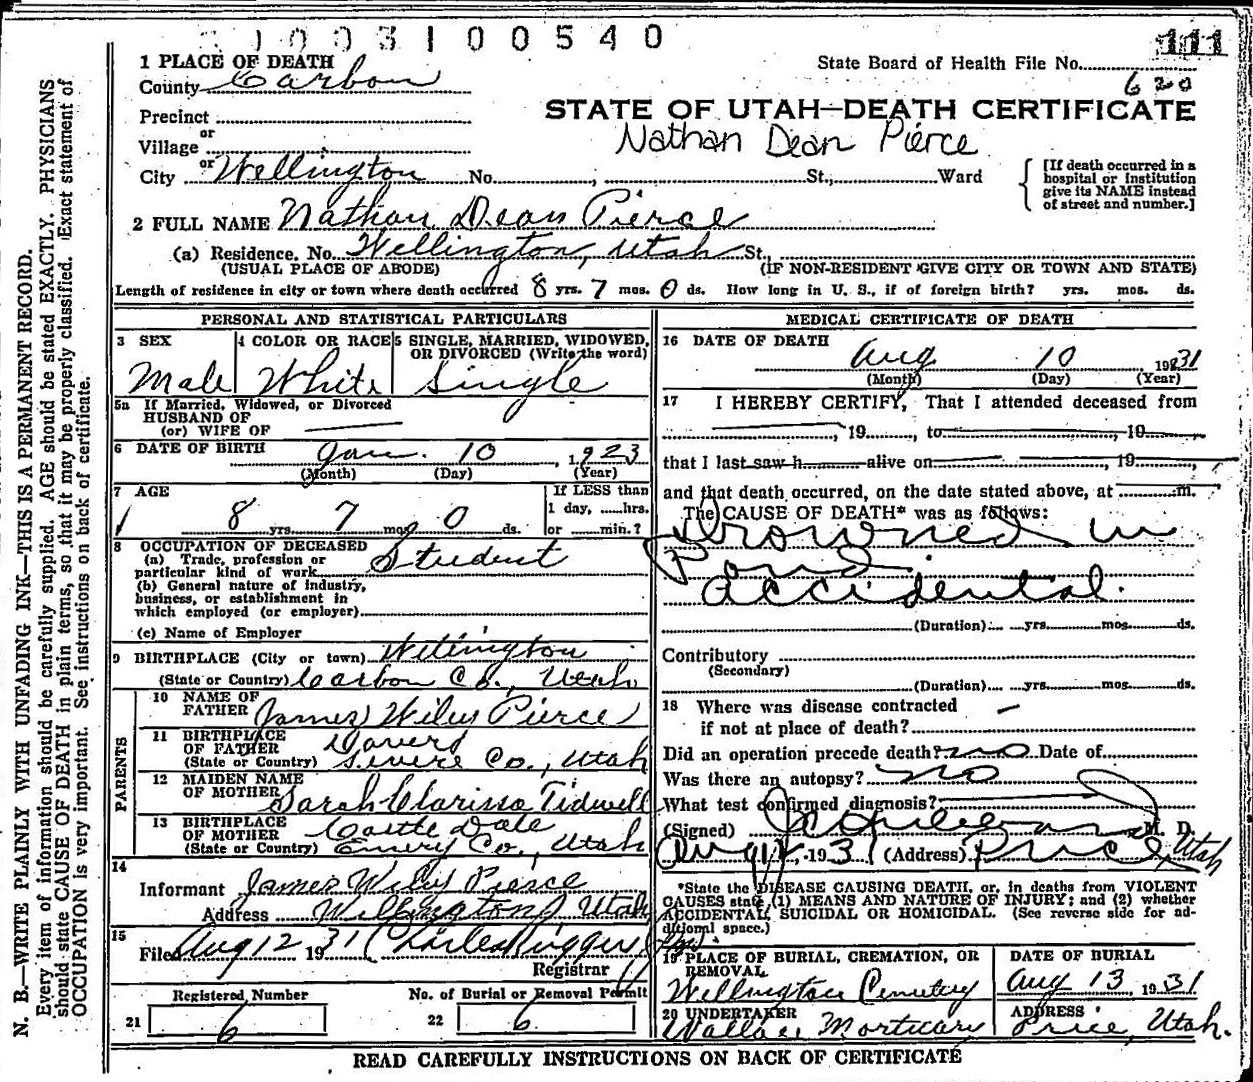 1003100540
111
1 PLACE OF DEATH
State Board of Health File No.
County Carbon
620
STATE OF UTAH—DEATH CERTIFICATE
Precinct
Nathan Dean Pierce
or
Village
or
City Wellington No. , St., Ward
[If death occurred in a hospital or institution give its NAME instead of street and number.]
2 FULL NAME Nathan Dean Pierce
(a) Residence. No. Wellington, Utah St.,
(USUAL PLACE OF ABODE) (IF NON-RESIDENT GIVE CITY OR TOWN AND STATE)
Length of residence in city or town where death occurred 8 yrs. 7 mos. 0 ds. How long in U. S., if of foreign birth? yrs. mos. ds.
PERSONAL AND STATISTICAL PARTICULARS
3 SEX 4 COLOR OR RACE 5 SINGLE, MARRIED, WIDOWED, OR DIVORCED (Write the word)
Male White Single
5a If Married, Widowed, or Divorced
HUSBAND OF
(or) WIFE OF
6 DATE OF BIRTH Jan. 10, 1923
(Month) (Day) (Year)
7 AGE If LESS than
1 day, hrs.
8 yrs. 7 mos. 0 ds. or min.?
8 OCCUPATION OF DECEASED
(a) Trade, profession or
particular kind of work Student
(b) General nature of industry,
business, or establishment in
which employed (or employer)
(c) Name of Employer
9 BIRTHPLACE (City or town) Wellington
(State or Country) Carbon Co., Utah
PARENTS
10 NAME OF
FATHER James Wiley Pierce
11 BIRTHPLACE
OF FATHER
(State or Country) Severe Co., Utah
12 MAIDEN NAME
OF MOTHER Sarah Clarissa Tidwell
13 BIRTHPLACE
OF MOTHER Castle Dale
(State or Country) Emery Co., Utah
14
Informant James Wiley Pierce
Address Wellington, Utah
15
Filed Aug 12 1931 Charles
Registrar
Registered Number No. of Burial or Removal Permit
21 6 22 6
MEDICAL CERTIFICATE OF DEATH
16 DATE OF DEATH
Aug 10 1931
(Month) (Day) (Year)
17 I HEREBY CERTIFY, That I attended deceased from
, 19 , to , 19
that I last saw h alive on , 19
and that death occurred, on the date stated above, at m.
The CAUSE OF DEATH* was as follows:
Drowned in
Pond
accidental.
(Duration) yrs. mos. ds.
Contributory
(Secondary)
(Duration) yrs. mos. ds.
18 Where was disease contracted
if not at place of death?
Did an operation precede death? no Date of
Was there an autopsy? no
What test confirmed diagnosis?
(Signed) M. D.
Aug 12, 1931 (Address) Price, Utah
*State the DISEASE CAUSING DEATH, or, in deaths from VIOLENT
CAUSES state (1) MEANS AND NATURE OF INJURY; and (2) whether
ACCIDENTAL, SUICIDAL OR HOMICIDAL. (See reverse side for ad-
ditional space.)
19 PLACE OF BURIAL, CREMATION, OR REMOVAL DATE OF BURIAL
Wellington Cemetery Aug 13, 1931
20 UNDERTAKER ADDRESS
Wallace Mortuary Price, Utah.
READ CAREFULLY INSTRUCTIONS ON BACK OF CERTIFICATE
N. B.—WRITE PLAINLY WITH UNFADING INK—THIS IS A PERMANENT RECORD.
Every item of information should be carefully supplied. AGE should be stated EXACTLY. PHYSICIANS
should state CAUSE OF DEATH in plain terms, so that it may be properly classified. Exact statement of
OCCUPATION is very important. See instructions on back of certificate.